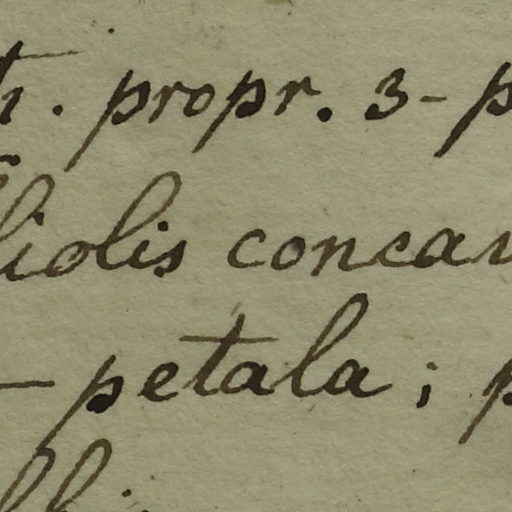 . propr. 3-p
liolis concav
- petala; p